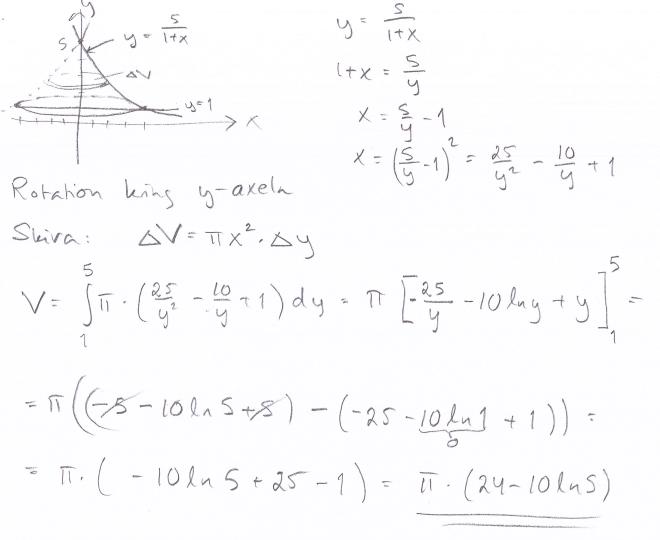 y
5
y = 5/(1+x)
ΔV
y=1
x
y = 5/(1+x)
1+x = 5/y
x = 5/y - 1
x = (5/y - 1)² = 25/y² - 10/y + 1
Rotation kring y-axeln
Skiva: ΔV = πx²·Δy
V = ∫₁⁵ π · (25/y² - 10/y + 1) dy = π [-25/y - 10 ln y + y]₁⁵ =
= π((-5 - 10 ln 5 + 5) - (-25 - 10 ln 1 + 1)) =
0
= π · ( - 10 ln 5 + 25 - 1) = π · (24 - 10 ln 5)